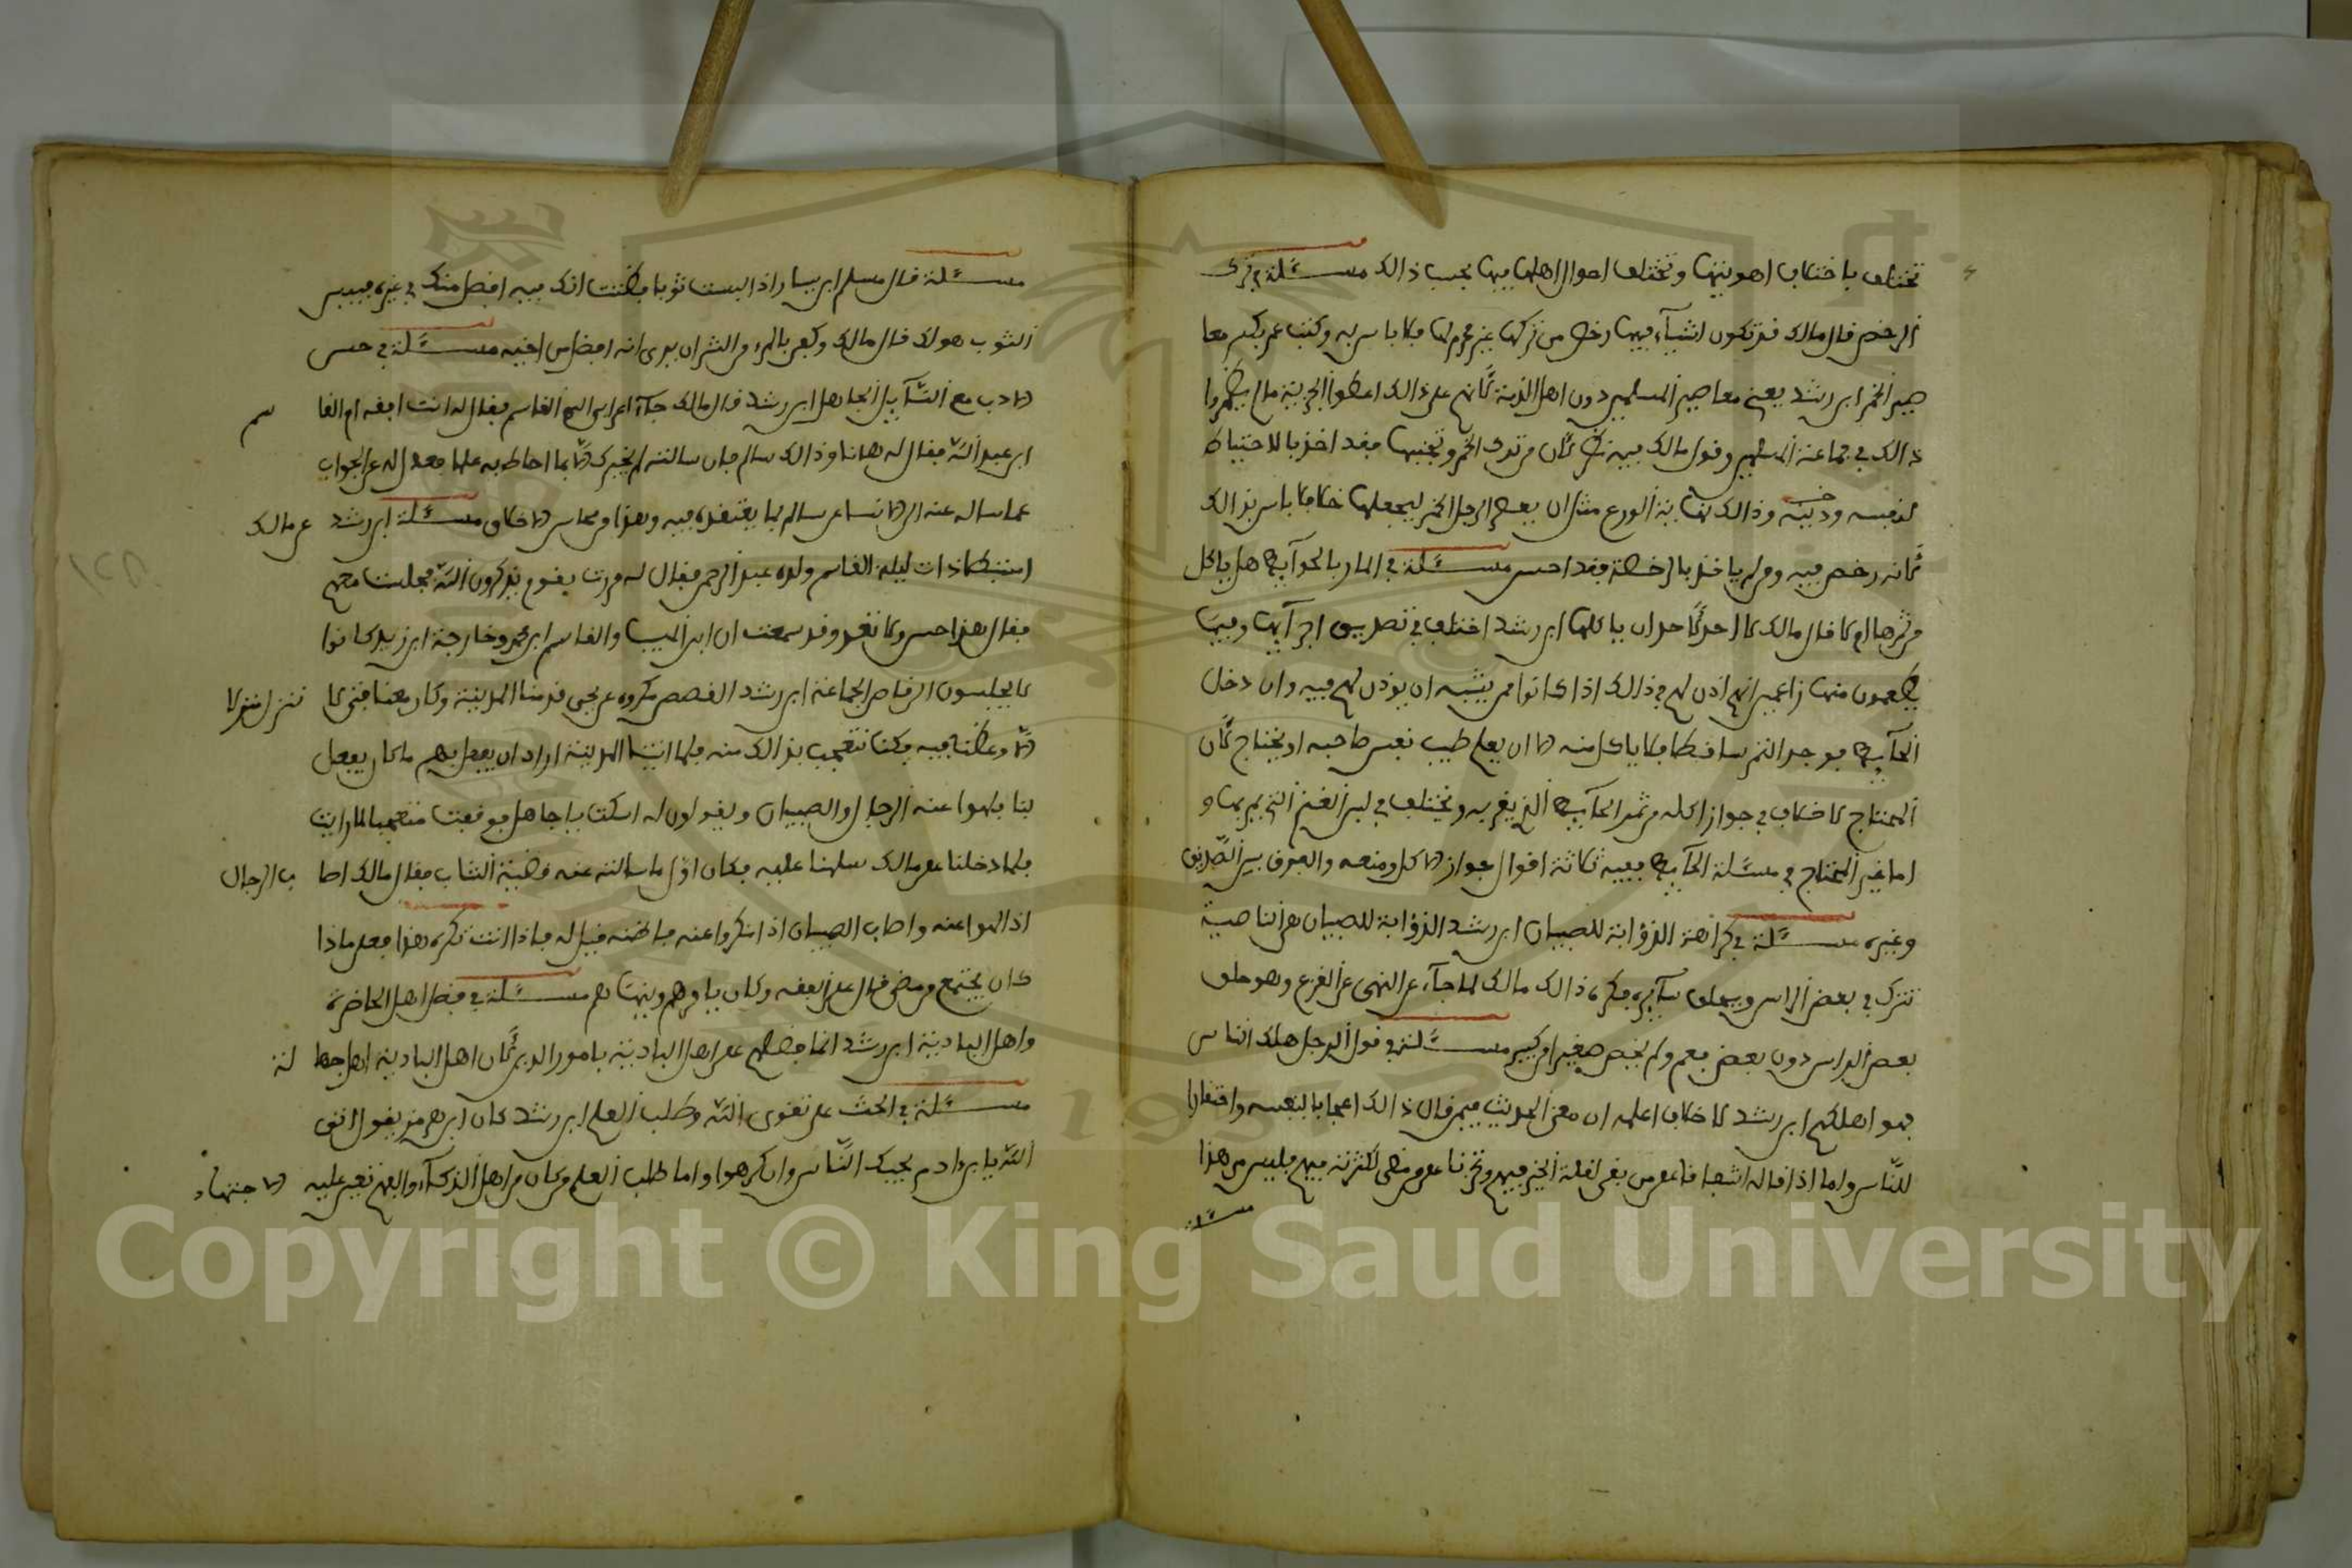 تختلف باختلاف اهويتها وتختلف احوال اهلها فيها بحسب ذالك مسئلة في ترك
الرخص قال مالك قد تكون اشياء فيها رخص من تركها غير محرم لها فلا باس به وكتب عمر بكسر معا
صير الخمر ابن رشد يعني معاصير المسلمين دون اهل الذمة لانهم على ذالك اعطوا الجزية ما لم يظهروا
ذالك في جماعة المسلمين وقول مالك بين لان من ترك الخمر وتجنبها فقد اخذ بالاحتياط
لنفسه ودينه وذالك نهاية الورع مثل ان يعطى الرجل الخمر ليجعلها خلا فلا باس بذالك
لانه رخص فيه ومن لم ياخذ بالرخصة فقد احسن مسئلة في المار بالحوآيط هل ياكل
من ثمرها ام لا قال مالك لا احد لاحد ان ياكلها ابن رشد اختلف في تصديق اجرآيها وفيمن
يطعمون منها زاعمين انهم اذن لهم في ذالك اذا كانوا ممن يشبه ان يوذن لهم فيه وان دخل
الحآيط فوجد الثمر ساقطا فلا ياكل منه الا ان يعلم طيب نفس صاحبه او يحتاج لان
المحتاج لا خلاف في جواز اكله من ثمر الحآيط الذي يمر به ويختلف في لبن الغنم التي يمر بها و
اما غير المحتاج في مسئلة الحآيط ففيه ثلاثة اقوال جواز الاكل ومنعه والفرق بين الصديق
وغيره مسئلة في كراهة الذؤابة للصبيان ابن رشد الذؤابة للصبيان هي الناصية
تترك في بعض الراس ويحلق سآيره فكره ذالك مالك لما جآء عن النهي عن القزع وهو حلق
بعض الراس دون بعض فعم ولم يخص صغيرا من كبير مسئلة في قول الرجل هلك الناس
فهو اهلكهم ابن رشد لا خلاف اعلمه ان معنى الحديث فيمن قال ذالك اعجابا لنفسه واحتقارا
للناس واما اذا قاله اشفاقا على من بقي لقلة الخير فيهم وتحزنا على من مضى لكثرته فيهم فليس من هذا
مسئلة
مسئلة قال مسلم ابن يسار اذا لبست ثوبا فظننت انك فيه افضل منك في غيره فبيس
الثوب هو لك قال مالك وكفى بالمرء من الشر ان يرى انه افضل من اخيه مسئلة في حسن
الادب مع السآيل الجاهل ابن رشد قال مالك جآء اعرابي الى القاسم فقال له انت افقه ام سالم
ابن عبد الله فقال له هانا وذالك سالم فان سالته لم يخبرك الا بما احاط به علما فعدل له عن الجواب
عما ساله عنه الى الاتساء عن سالم بما يعتقده فيه وهذا من محاسن الاخلاق مسئلة ابن رشد عن مالك
استبطا ذات ليلة القاسم ولده عبد الرحمن فقال له مررت بقوم يذكرون الله فجلست معهم
فقال هذا حسن ولا تعد وقد سمعت ان ابن المسيب والقاسم ابن محمد وخارجة ابن زيد كانوا
لا يجلسون الى قاص الجماعة ابن رشد القصص مكروه عن يحيى قدمنا المدينة وكان معنا فتى لا ننزل منزلا
الا وعظنا فيه فكنا نتعجب بذالك منه فلما اتينا المدينة اراد ان يفعل بهم ما كان يفعل
بنا فلهوا عنه الرجال والصبيان ويقولون له اسكت يا جاهل فوقفت متعجبا لما رايت
فلما دخلنا على مالك سلمنا عليه فكان اول ما سالته عنه قضية الشاب فقال مالك اصاب الرجال
اذ لهوا عنه واصاب الصبيان اذ انكروا عنه باطله فقيل له فاذا انت تكره هذا فعلى ماذا
كان يجتمع من مضى قال على الفقه وكان يامرهم وينهاهم مسئلة في فضل اهل الحاضرة
واهل البادية ابن رشد انما فضلهم على اهل البادية بامور الدين لان اهل البادية اهل جهالة
مسئلة في الحث على تقوى الله وطلب العلم ابن رشد كان ابن هرمز يقول اتقى
الله يا ابن ءادم يحبك الناس وان كرهوا واما طلب العلم فمن كان من اهل الذكآء والفهم تعين عليه الاجتهاد